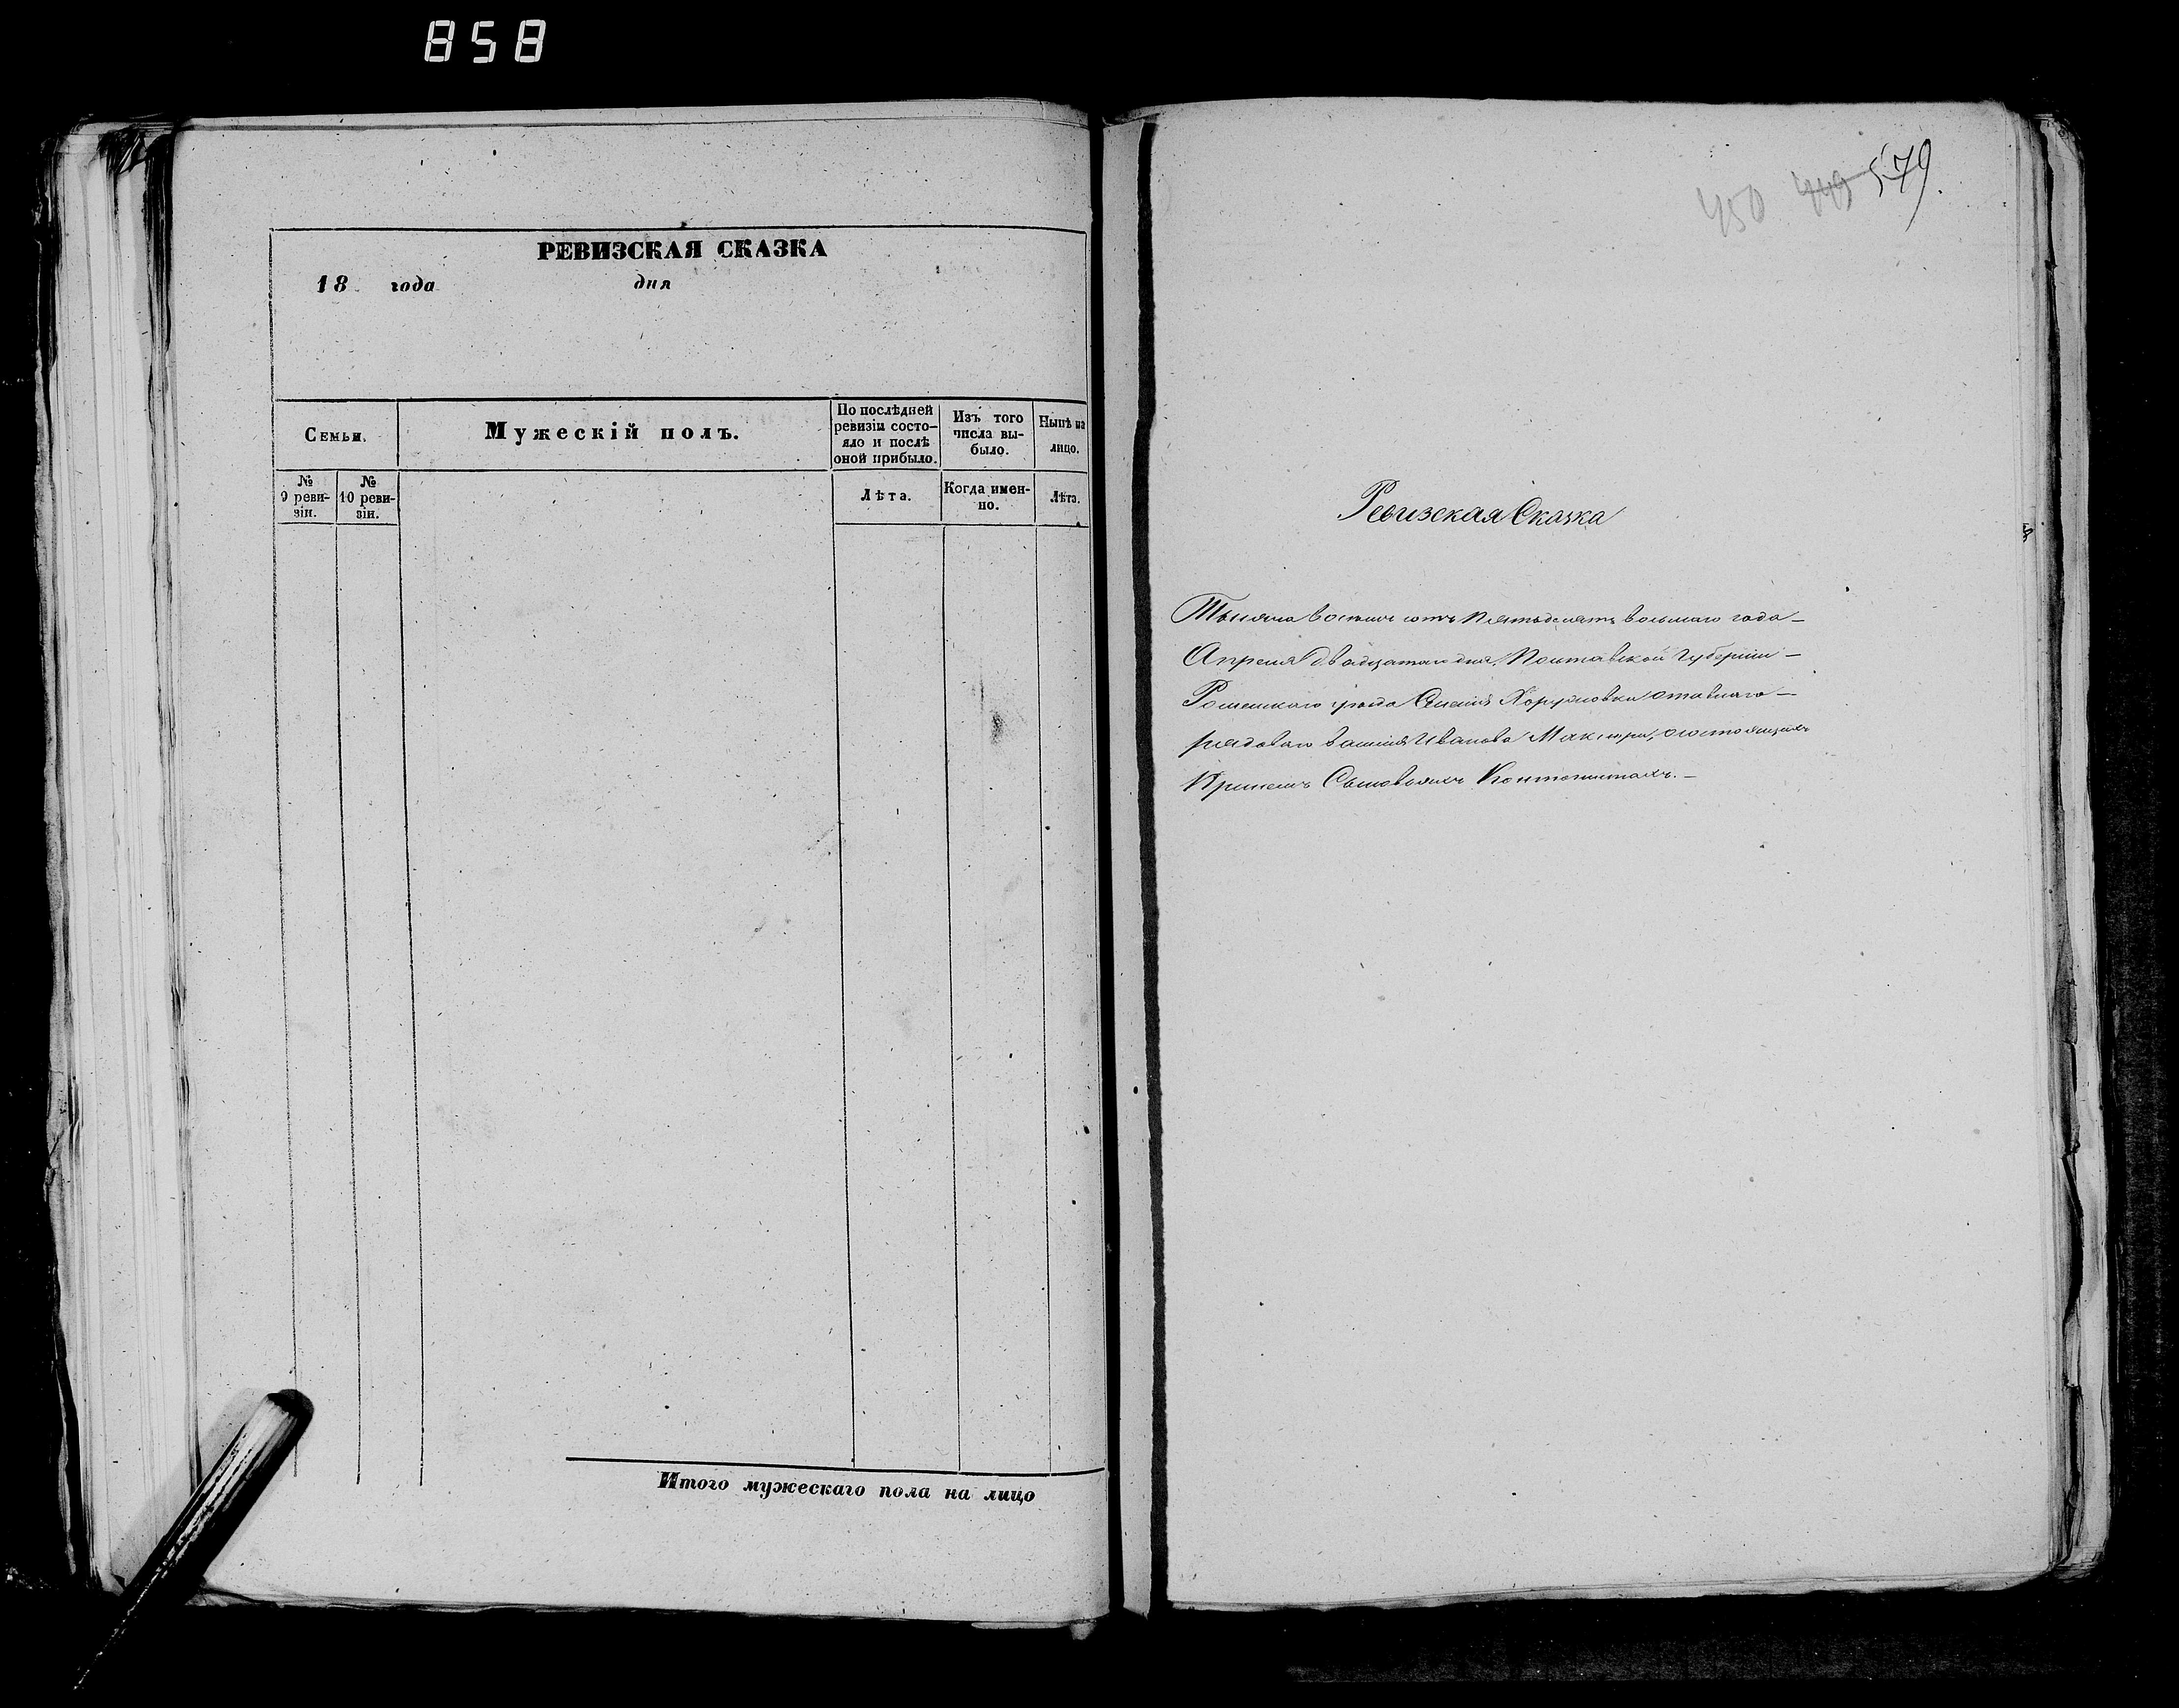 858
РЕВИЗСКАЯ СКАЗКА
18 года дня
Семьи.
Мужескій полъ.
По послѣдней ревизіи состо-
яло и послѣ
оной прибыло.
Изъ того
числа вы-
было.
Нынѣ на
лицо.
№
9 реви-
зіи.
№
10 реви-
зіи.
Лѣта.
Когда имен-
но.
Лѣта.
Итого мужескаго пола на лицо
450 449 579.
Ревизская Сказка
Тысяча восемь сотъ пятьдесятъ восьмаго года
Апреля двадцатаго дня, Полтавской Губерніи
Роменскаго уезда Хоружовки отставнаго
рядоваго Иванова состоящихъ
Принемъ Сыновьяхъ Кантонистахъ.